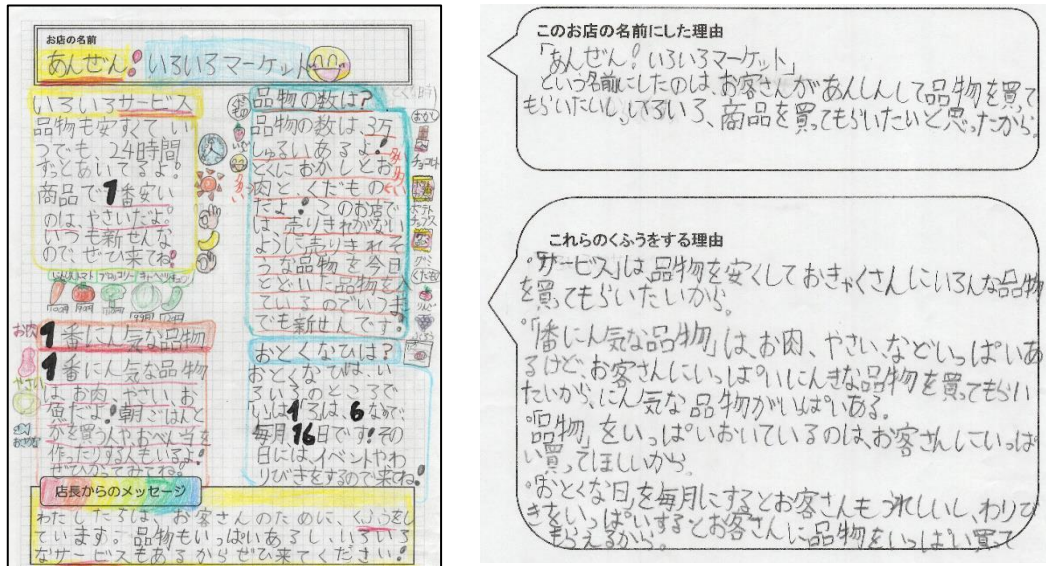 お店の名前
あんぜん!いろいろマーケット
いろいろサービス
品物も安すくて い
つでも、24時間
ずっとあいてるよ!
商品で1番安い
のは、やさいだよ。
いつも新せんな
ので、ぜひ来てね!
1番にん気な品物
1番にん気な品物
は、お肉、やさい、お
魚だよ!朝ごはんと
かを買う人やおべん当を
作ったりする人もいるよ!
ぜひかってみてね。
品物の数は?
品物の数は、3万
しゅるいあるよ!
とくにおかしとお
肉と、くだもの
だよ!このお店で
は、売りきれがない
ように売りきれそ
うな品物を今日
とどいた品物を入
ているのでいつま
でも新せんです。
おとくなひは?
おとくなひは、い
ろいろのところで
いは1ろは、6なので
毎月16日です!その
日には、イベントやわ
りびきをするので来ね!
おかし
チョコレート
ポテト
チップス
グミ
くだもの
りんご
お肉
やさい
店長からのメッセージ
わたしたちは、お客さんのために、くふうをし
ています。品物もいっぱいあるし、いろいろ
なサービスもあるからぜひ来てください!
このお店の名前にした理由
「あんぜん!いろいろマーケット」
という名前にしたのは、お客さんがあんしんして品物を買て
もらいたいし、いろいろ、商品を買てもらいたいと思ったから。
これらのくふうをする理由
・「サービス」は、品物を安くしておきゃくさんにいろんな品物
を買ってもらいたいから。
・「1番にん気な品物」は、お肉、やさい、などいっぱいあ
るけど、お客さんにいっぱいにんきな品物を買てもらい
たいから、にん気な品物がいぱいある。
・「品物」をいっぱいおいているのは、お客さんにいっぱ
い買ってほしいから。
・「おとくな日」を毎月にするとお客さんもうれしいし、わりび
きをいっぱいするとお客さんに品物をいっぱい買て
もらえるから。